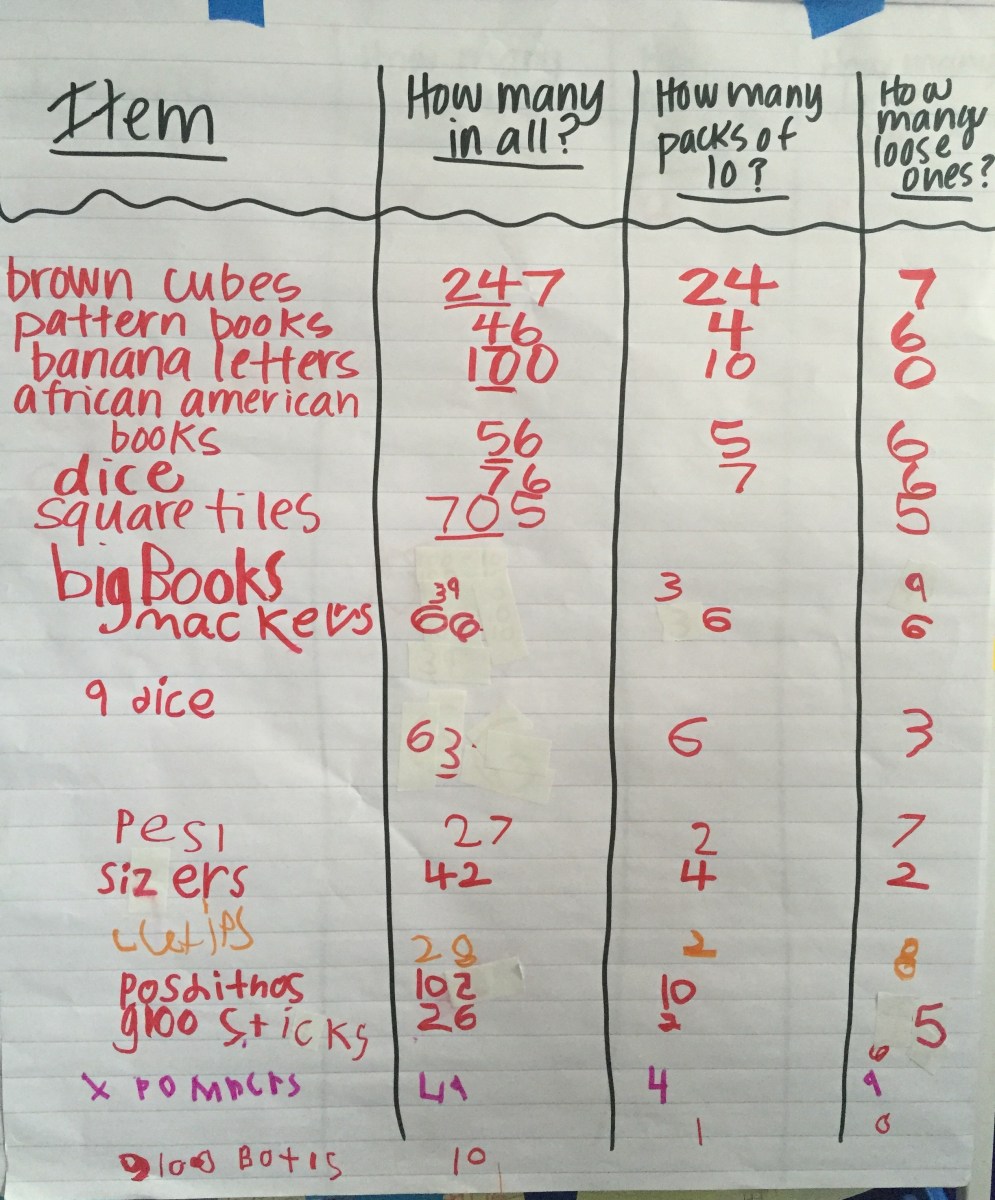 Item How many in all? How many packs of 10? How many loose ones?
brown cubes 247 24 7
pattern books 46 4 6
banana letters 100 10 0
african american
books 56 5 6
dice 76 7 6
square tiles 705 5
big Books 39 3 9
mackers 66 6 6
9 dice
63 6 3
pesi 27 2 7
sizers 42 4 2
28 2 8
102 10
gloo sticks 26 2 5
6
x 49 4 9
1 0
10